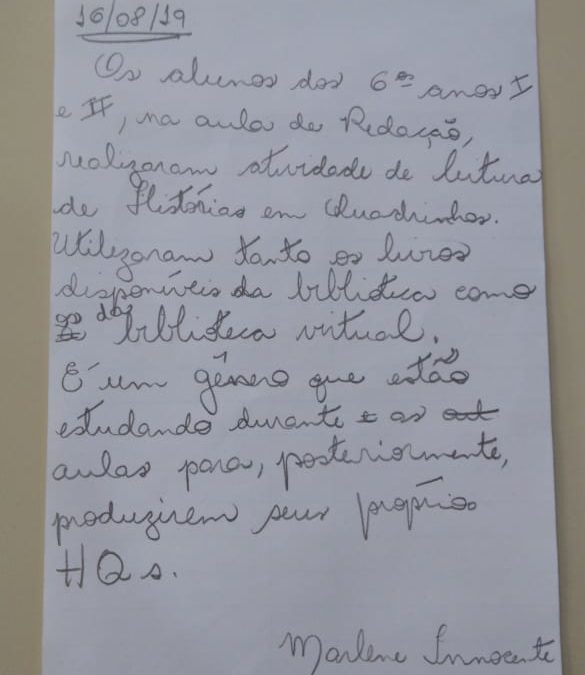 16/08/19
Os alunos dos 6ºs anos I
e II, na aula de Redação,
realizaram atividade de leitura
de Histórias em Quadrinhos.
Utilizaram tanto os livros
disponíveis da biblioteca como
os da biblioteca virtual.
É um gênero que estão
estudando durante as
aulas para, posteriormente,
produzirem seus próprios
HQs.
Marlene Innocente